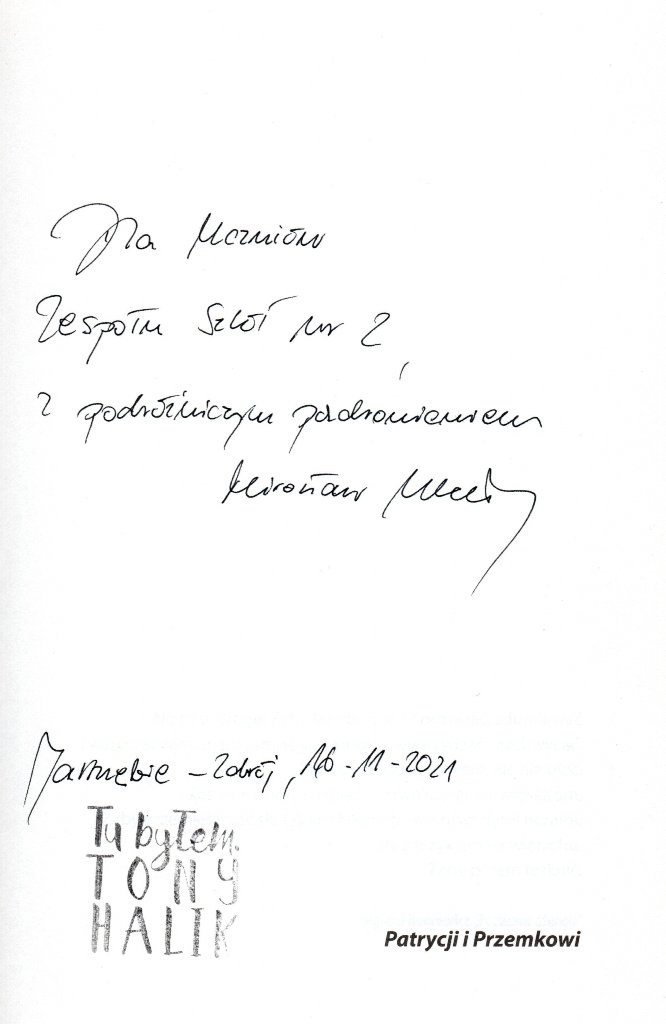 Dla Uczniów
Zespołu Szkół nr 2,
z podróżniczym pozdrowieniem
Mirosław
Jastrzębie-Zdrój, 16-11-2021
Tu byłem.
TONY
HALIK
Patrycji i Przemkowi